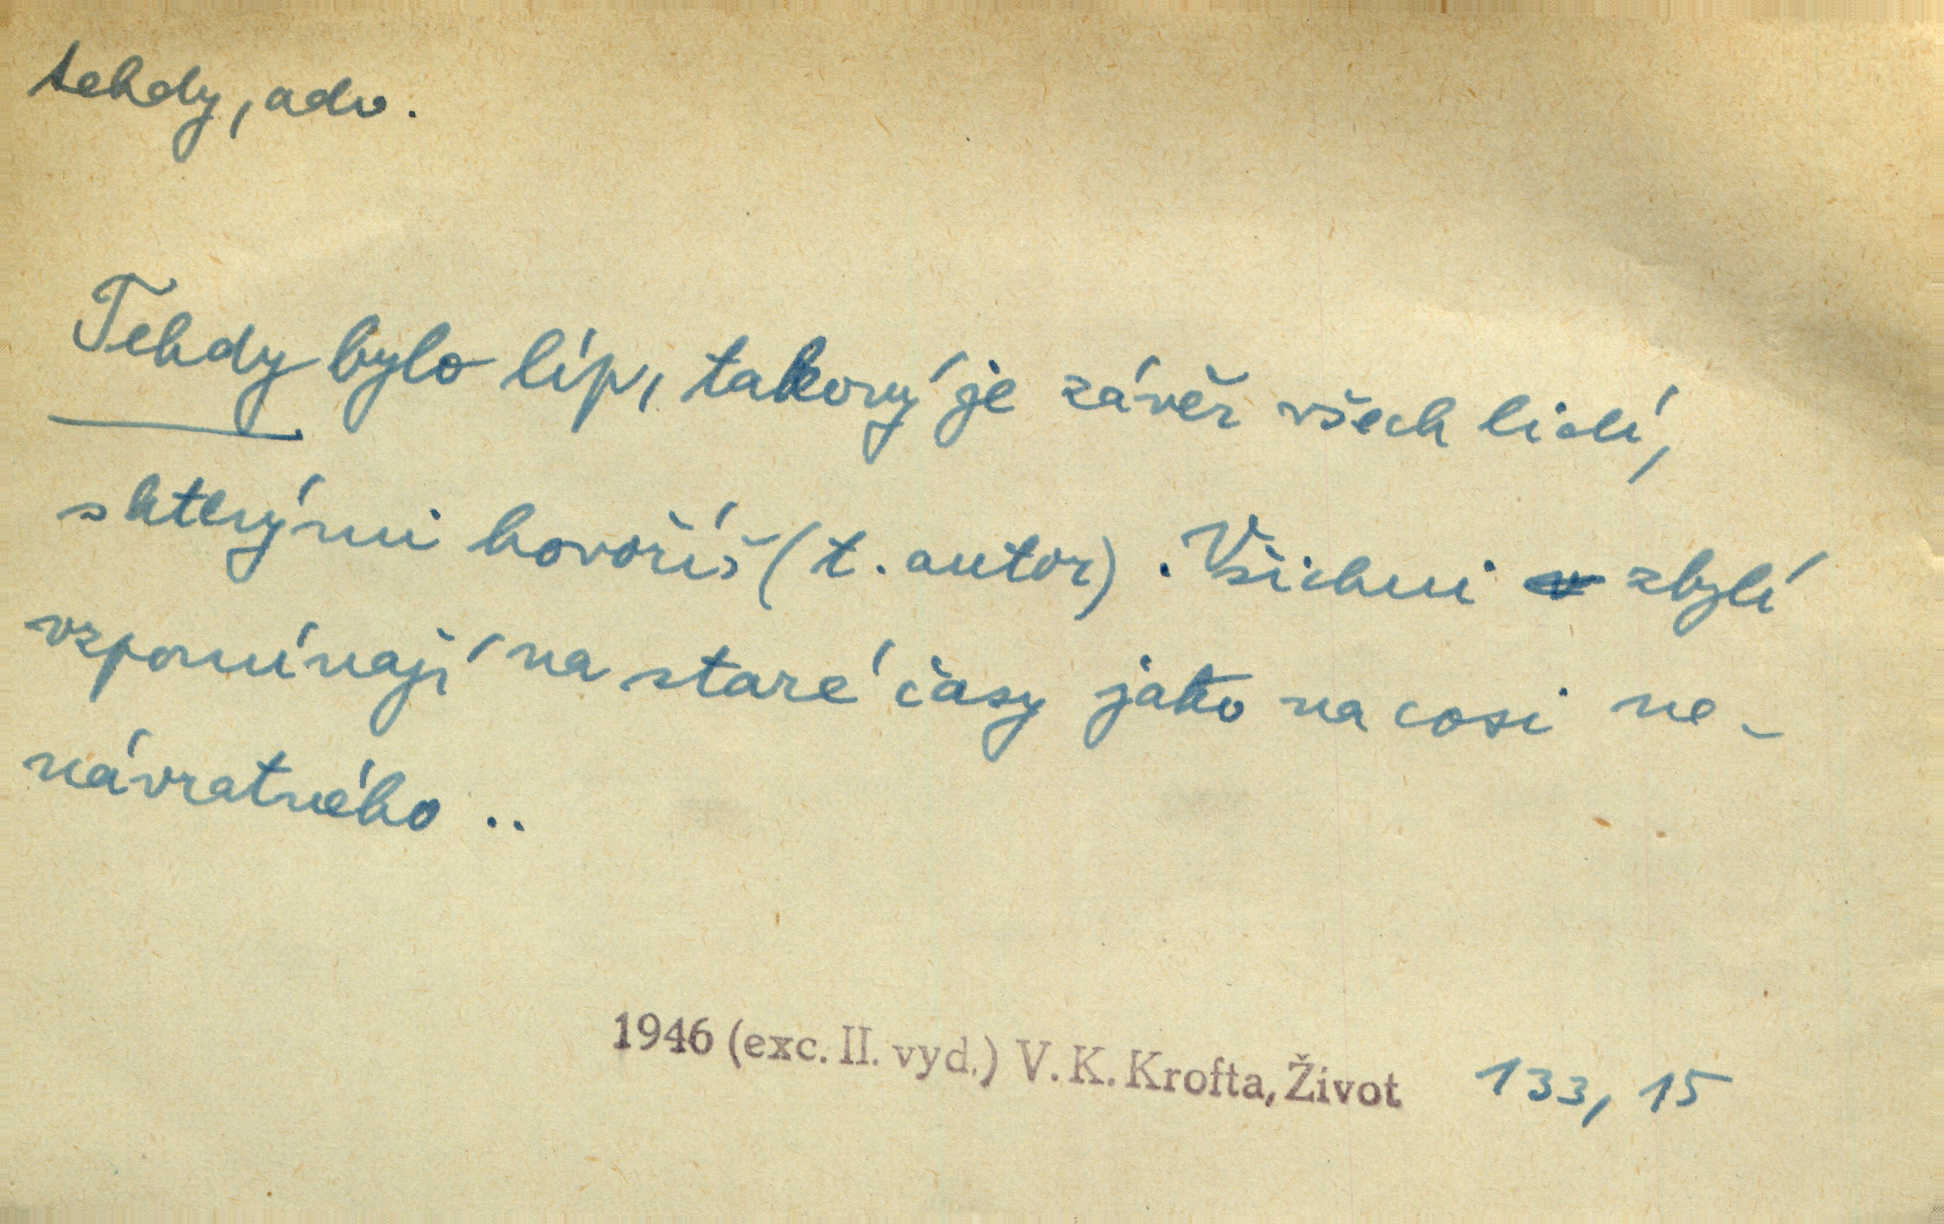 tehdy, adv.
Tehdy bylo líp, takový je závěr všech lidí,
s kterými hovoříš (t. autor). Všichni zbylí
vzpomínají na staré časy jako na cosi ne-
návratného ..
1946 (exc. II. vyd.) V. K. Krofta, Život 133, 15